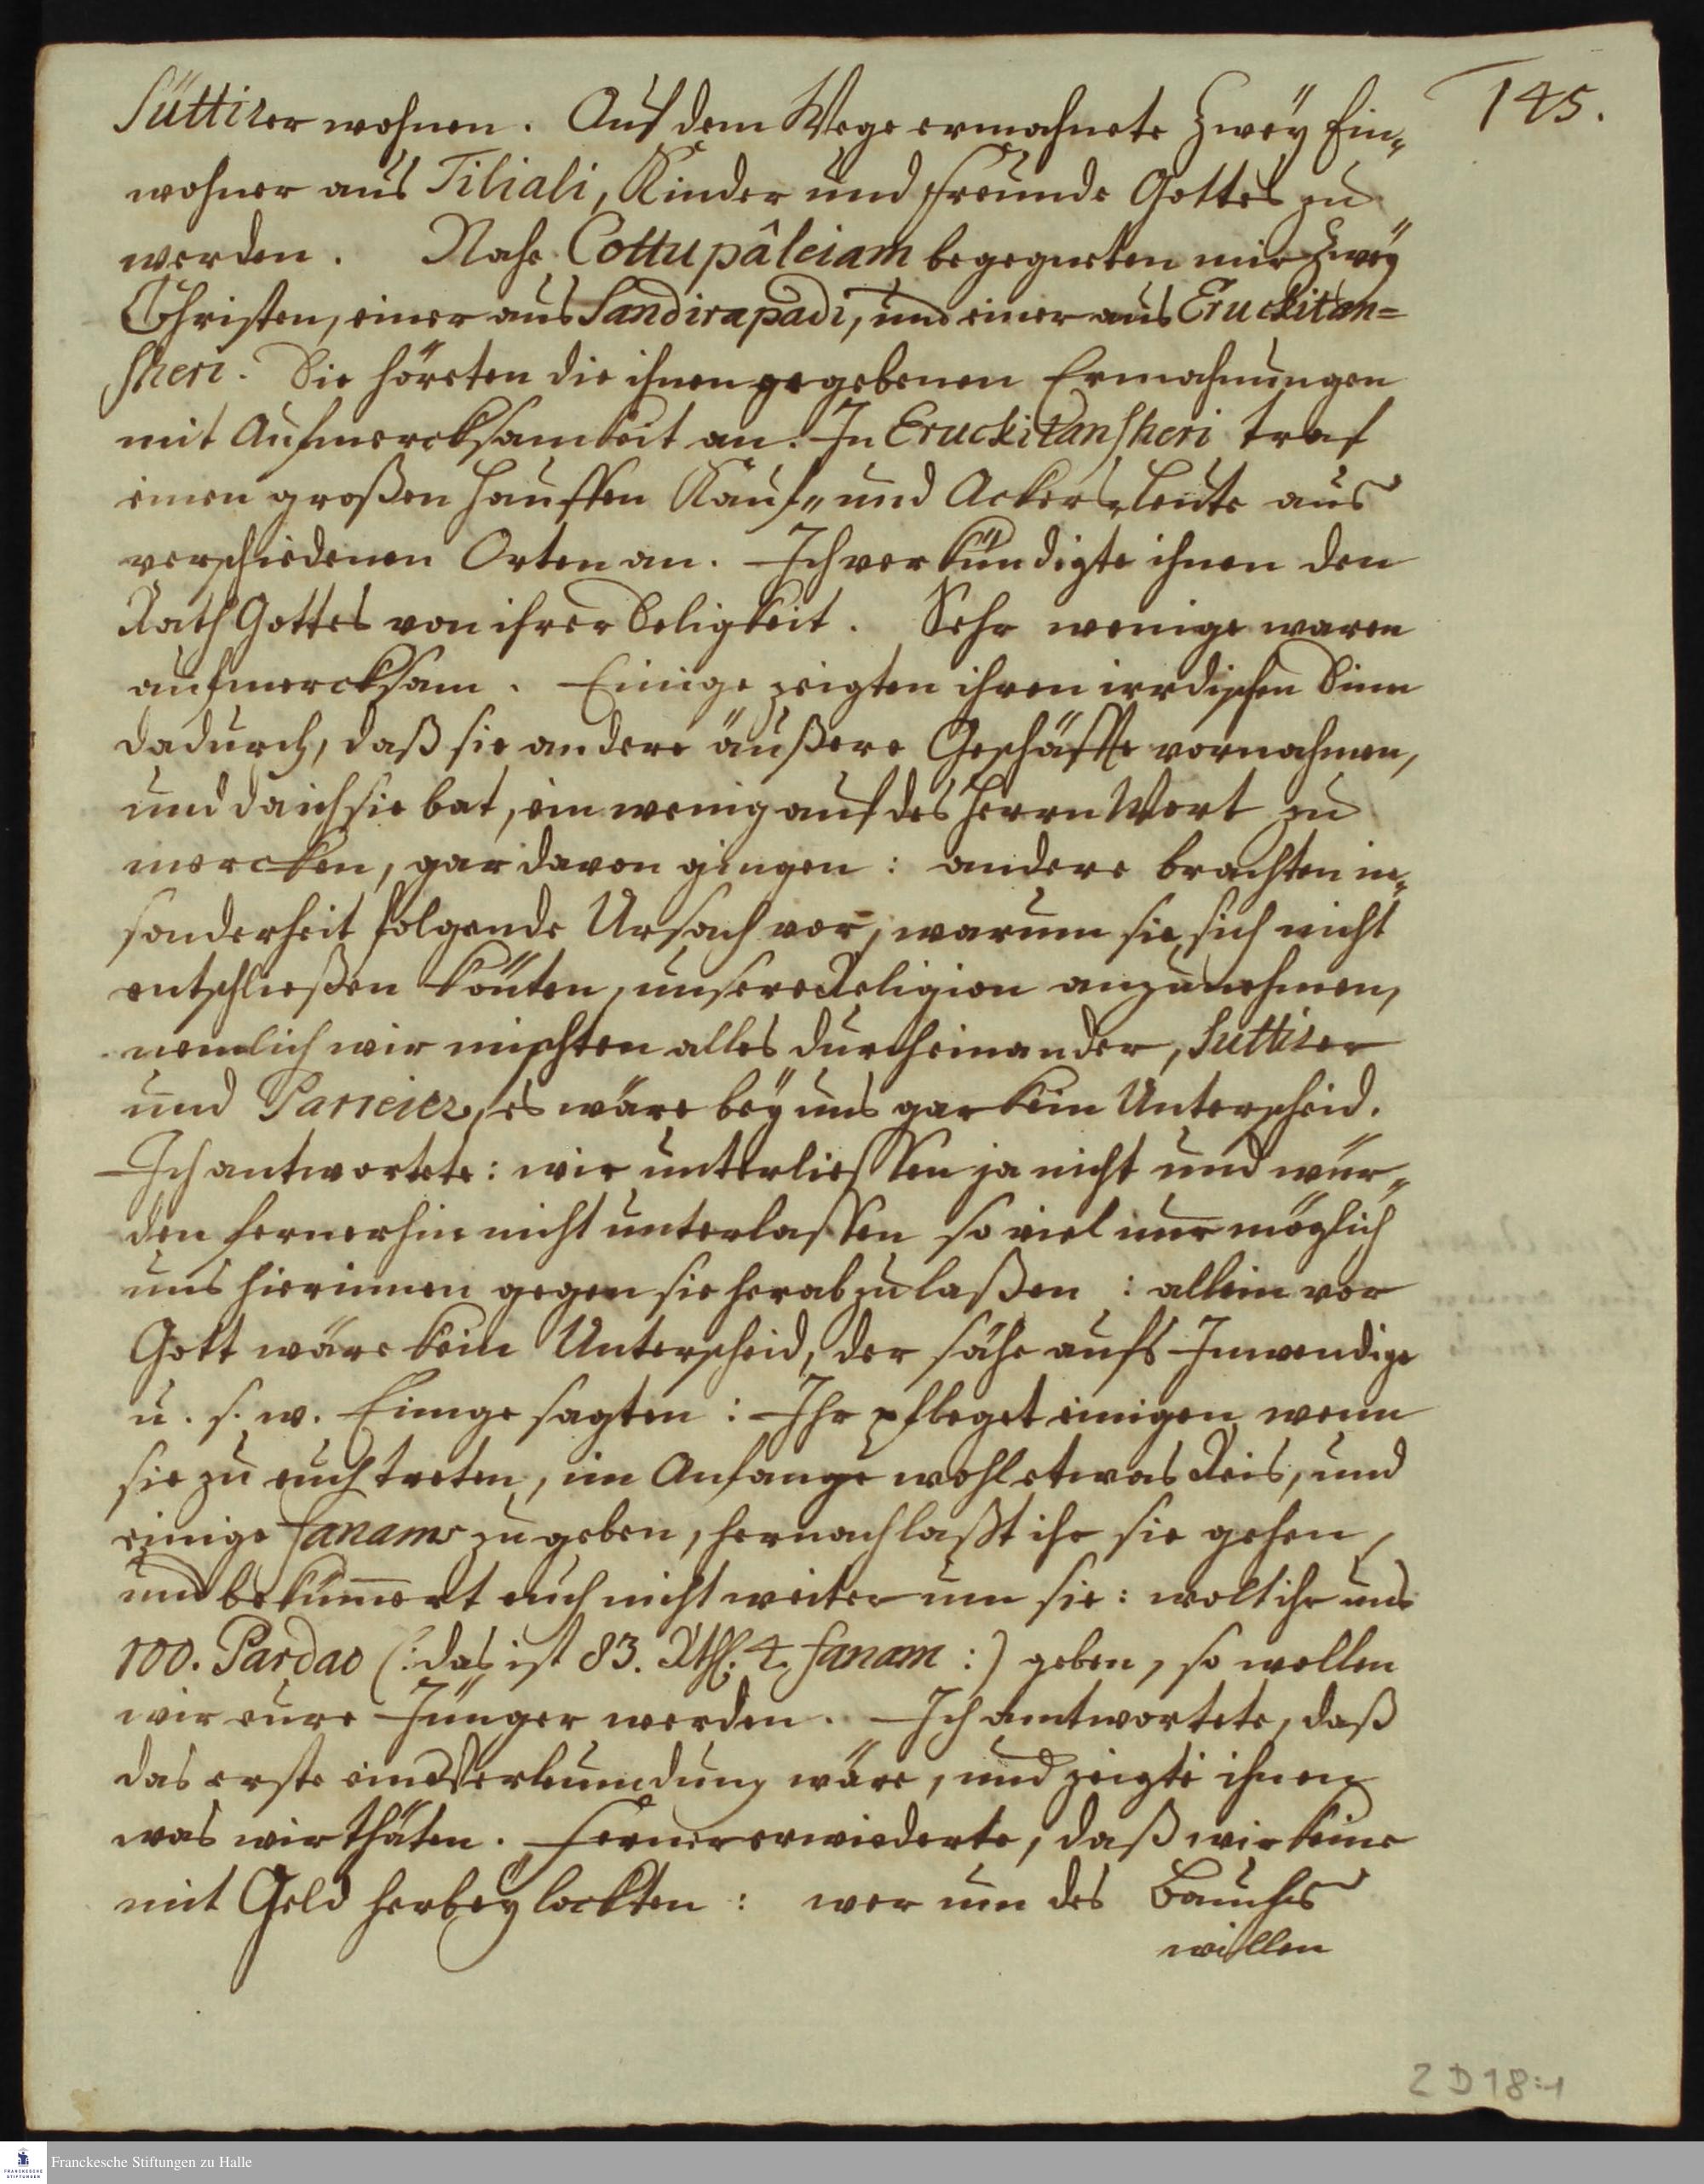 145.
Suttirer wohnen. Auf dem Wege ermahnete zweÿ Ein„
wohner aus Tiliali, Kinder und Freunde Gottes zu
werden. Nahe Cottupâleiam begegneten mir zweÿ
Christen, einer aus Sandirapadi, und einer aus Eruckitan=
sheri. Sie höreten die ihnen gegebenen Ermahnungen
mit Aufmercksamkeit an. In Eruckitansheri traf
einen großen Hauffen Kauf„ und Ackersleute aus
verschiedenen Orten an. Ich verkündigte ihnen den
Rath Gottes von ihrer Seligkeit. Sehr wenige waren
aufmercksam. Einige zeigten ihren irrdischen Sinn
dadurch, daß sie andere äußere Geschäffte vornahmen,
und da ich sie bat, ein wenig auf des Herrn Wort zu
mercken, gar davon gingen: andere brachten in„
sonderheit folgende Ursach vor, warum sie sich nicht
entschließen könten, unsere Religion anzunehmen,
nemlich wir mischten alles durcheinander, Suttirer
und Parreier, es wäre beÿ uns gar kein Unterscheid.
Ich antwortete: wir unterliessen ja nicht und wür„
den fernerhin nicht unterlassen so viel nur möglich
uns hierinnen gegen sie herabzulaßen: allein vor
Gott wäre kein Unterscheid, der sähe aufs Inwendige
u. s. w. Einige sagten: Ihr pfleget einigen wenn
sie zu euch treten, im Anfange wohl etwas Reis, und
einige fanams zu geben, hernach laßt ihr sie gehen,
und bekum̅ert euch nicht weiter um sie: wolt ihr uns
100. Pardao (: das ist 83. Rthl. 4. fanam :) geben, so wollen
wir eure Jünger werden. Ich antwortete, daß
das erste eine Verleumdung wäre, und zeigte ihnen
was wir thäten. Ferner erwiederte, daß wir keine
mit Geld herbeÿ lockten: wer um des Bauchs
willen
2 D 18:1
Franckesche Stiftungen zu Halle